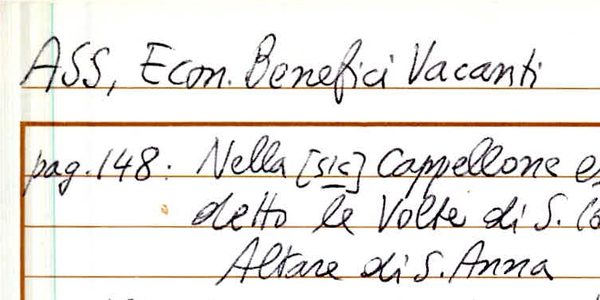 ASS, Econ. Benefici Vacanti
pag. 148: Nella [sic] Cappellone
detto le Volte di S.
Altare di S. Anna